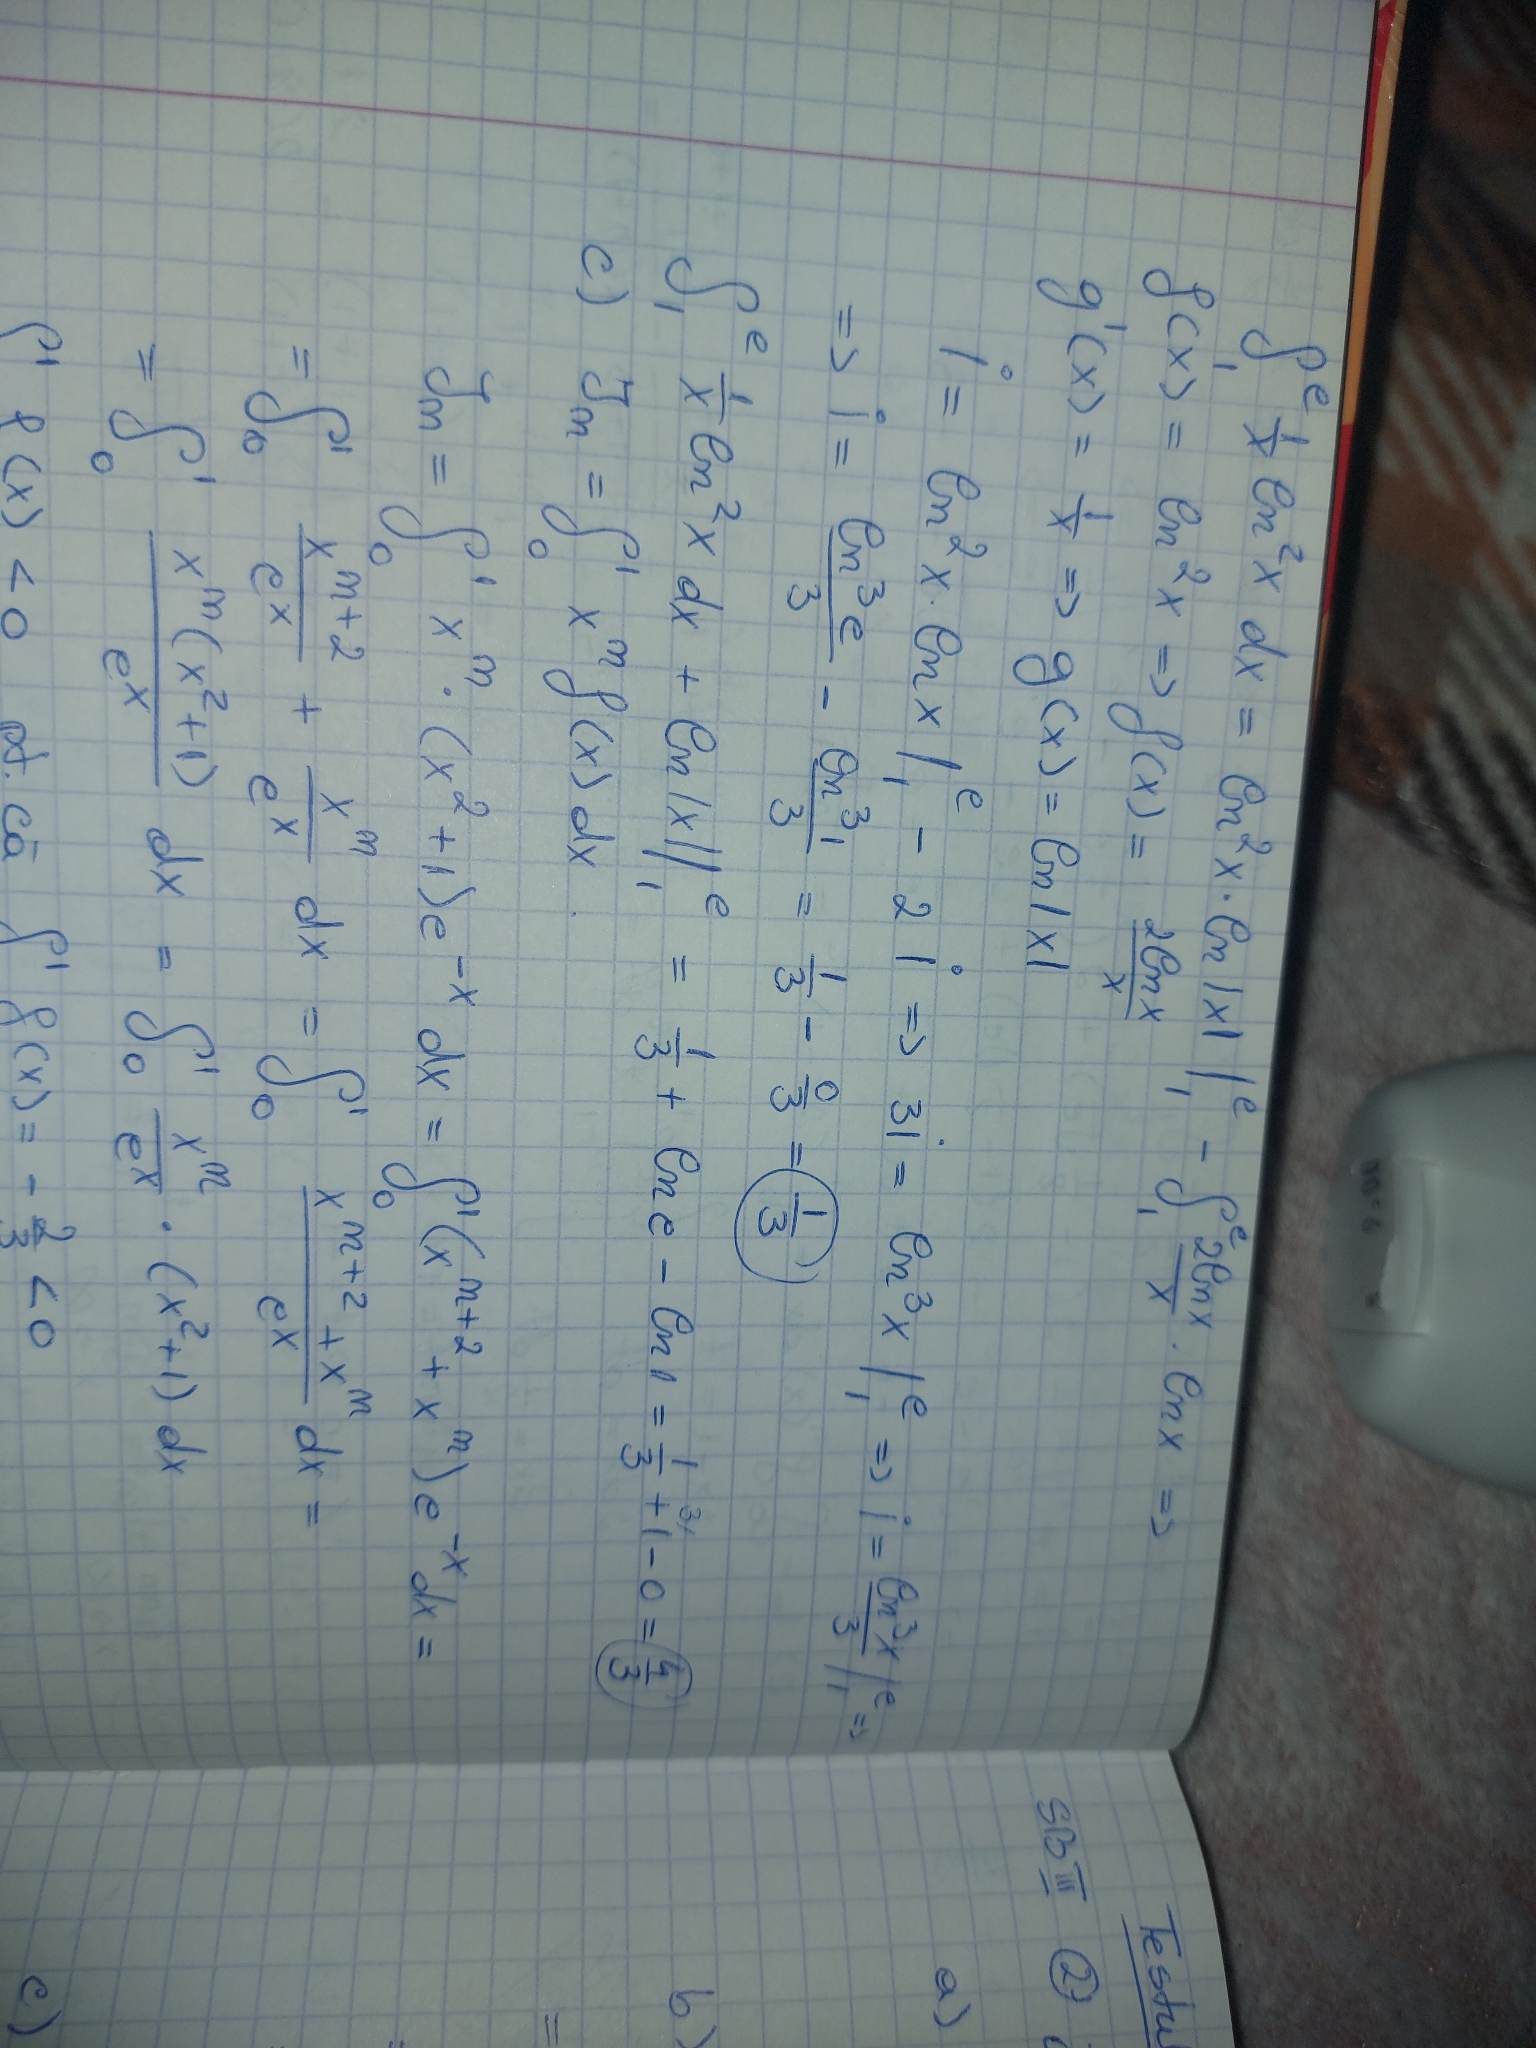 ∫₁ᵉ 1/x ln²x dx = ln²x · ln|x| |₁ᵉ - ∫₁ᵉ 2lnx/x · lnx =>
f(x) = ln²x => f(x) = 2lnx/x
g'(x) = 1/x => g(x) = ln|x|
i = ln²x · lnx |₁ᵉ - 2i => 3i = ln³x |₁ᵉ => i = ln³x/3 |₁ᵉ =>
=> i = ln³e/3 - ln³1/3 = 1/3 - 0/3 = 1/3
∫₁ᵉ 1/x ln²x dx + ln|x| |₁ᵉ = 1/3 + ln e - ln 1 = 1/3 + ³⁾1 - 0 = 4/3
c) Iₙ = ∫₀¹ xⁿ f(x) dx.
Iₙ = ∫₀¹ xⁿ · (x²+1)e⁻ˣ dx = ∫₀¹ (xⁿ⁺² + xⁿ)e⁻ˣ dx =
= ∫₀¹ xⁿ⁺²/eˣ + xⁿ/eˣ dx = ∫₀¹ (xⁿ⁺² + xⁿ)/eˣ dx =
= ∫₀¹ xⁿ(x²+1)/eˣ dx = ∫₀¹ xⁿ/eˣ · (x²+1) dx
∫¹ f(x) < 0 pt. că ∫¹ f(x) = - 2/3 < 0
SB III 2)
a)
b)
=
=
c)